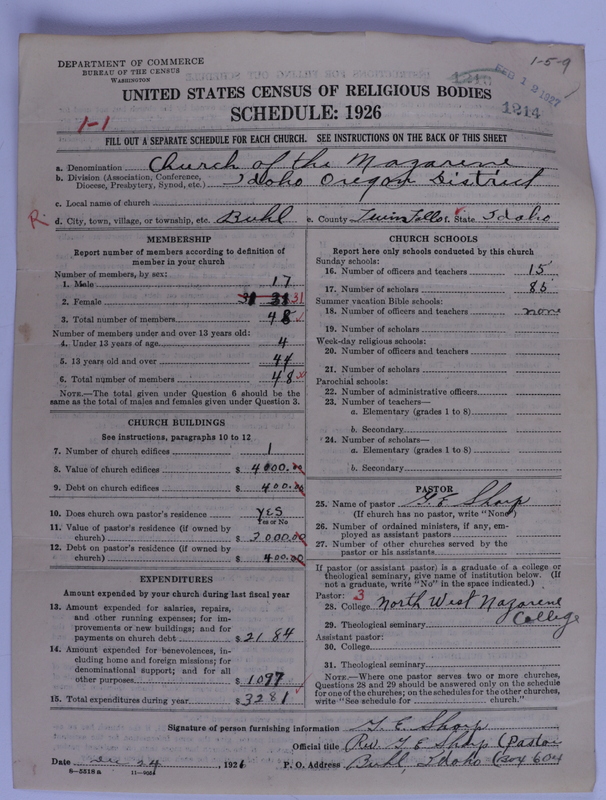 DEPARTMENT OF COMMERCE
BUREAU OF THE CENSUS
WASHINGTON
1-5-9
FEB 19 1927
1214
UNITED STATES CENSUS OF RELIGIOUS BODIES
SCHEDULE: 1926
1-1
FILL OUT A SEPARATE SCHEDULE FOR EACH CHURCH. SEE INSTRUCTIONS ON THE BACK OF THIS SHEET
a. Denomination Church of the Nazarene
b. Division (Association, Conference, Diocese, Presbytery, Synod, etc.) Idaho Oregon District
c. Local name of church
R. d. City, town, village, or township, etc. Buhl e. County Twin Falls f. State Idaho
MEMBERSHIP
Report number of members according to definition of
member in your church
Number of members, by sex:
1. Male 17
2. Female 31 31
3. Total number of members 48
Number of members under and over 13 years old:
4. Under 13 years of age 4
5. 13 years old and over 44
6. Total number of members 48
NOTE.—The total given under Question 6 should be
same as the total of males and females given under Question 3.
CHURCH BUILDINGS
See instructions, paragraphs 10 to 12
7. Number of church edifices 1
8. Value of church edifices $ 4000.00
9. Debt on church edifices $ 400.00
10. Does church own pastor's residence? YES
Yes or No
11. Value of pastor's residence (if owned by
church) $ 2000.00
12. Debt on pastor's residence (if owned by
church) $ 400.00
EXPENDITURES
Amount expended by your church during last fiscal year
13. Amount expended for salaries, repairs,
and other running expenses; for im-
provements or new buildings; and for
payments on church debt $ 2184
14. Amount expended for benevolences, in-
cluding home and foreign missions; for
denominational support; and for all
other purposes $ 1097
15. Total expenditures during year $ 3281
CHURCH SCHOOLS
Report here only schools conducted by this church
Sunday schools:
16. Number of officers and teachers 15
17. Number of scholars 85
Summer vacation Bible schools:
18. Number of officers and teachers none
19. Number of scholars
Week-day religious schools:
20. Number of officers and teachers
21. Number of scholars
Parochial schools:
22. Number of administrative officers
23. Number of teachers—
a. Elementary (grades 1 to 8)
b. Secondary
24. Number of scholars—
a. Elementary (grades 1 to 8)
b. Secondary
PASTOR
25. Name of pastor T. E. Sharp
(If church has no pastor, write "None")
26. Number of ordained ministers, if any, em-
ployed as assistant pastors
27. Number of other churches served by the
pastor or his assistants
If pastor (or assistant pastor) is a graduate of a college or
theological seminary, give name of institution below. (If
not a graduate, write "No" in the space indicated.)
Pastor: 3
28. College North West Nazarene
College
29. Theological seminary
Assistant pastor:
30. College
31. Theological seminary
NOTE.—Where one pastor serves two or more churches,
Questions 28 and 29 should be answered only on the schedule
for one of the churches; on the schedules for the other churches,
write "See schedule for church."
Signature of person furnishing information T. E. Sharp
Official title Rev. T E Sharp (Pastor
Date 24, 1926 P. O. Address Buhl, Idaho (Box 604
8—5518a 11—9051